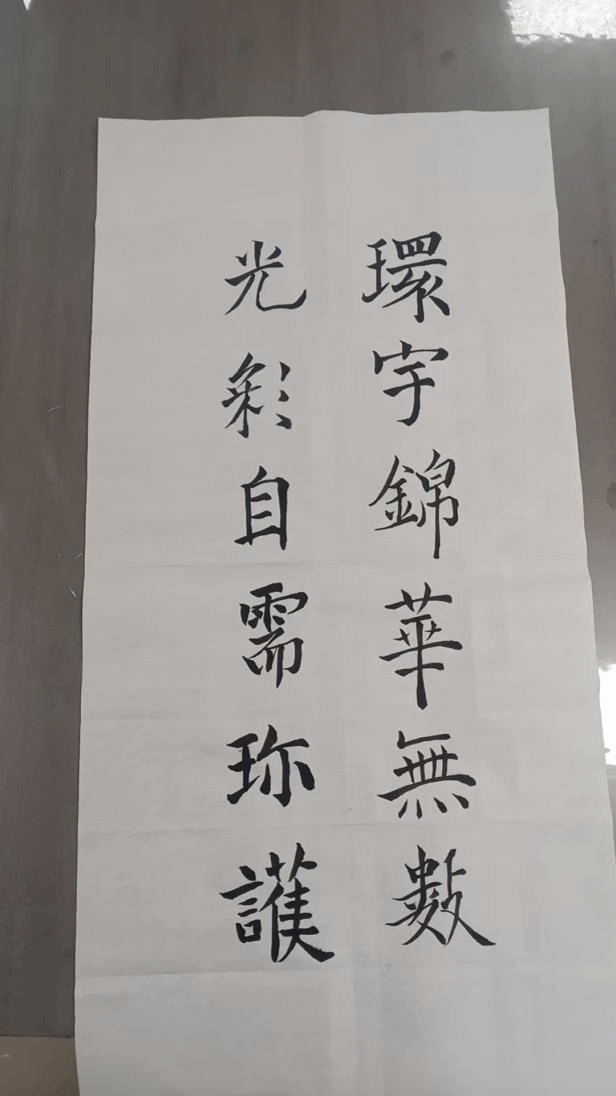 環宇錦華無數
光彩自需珎護